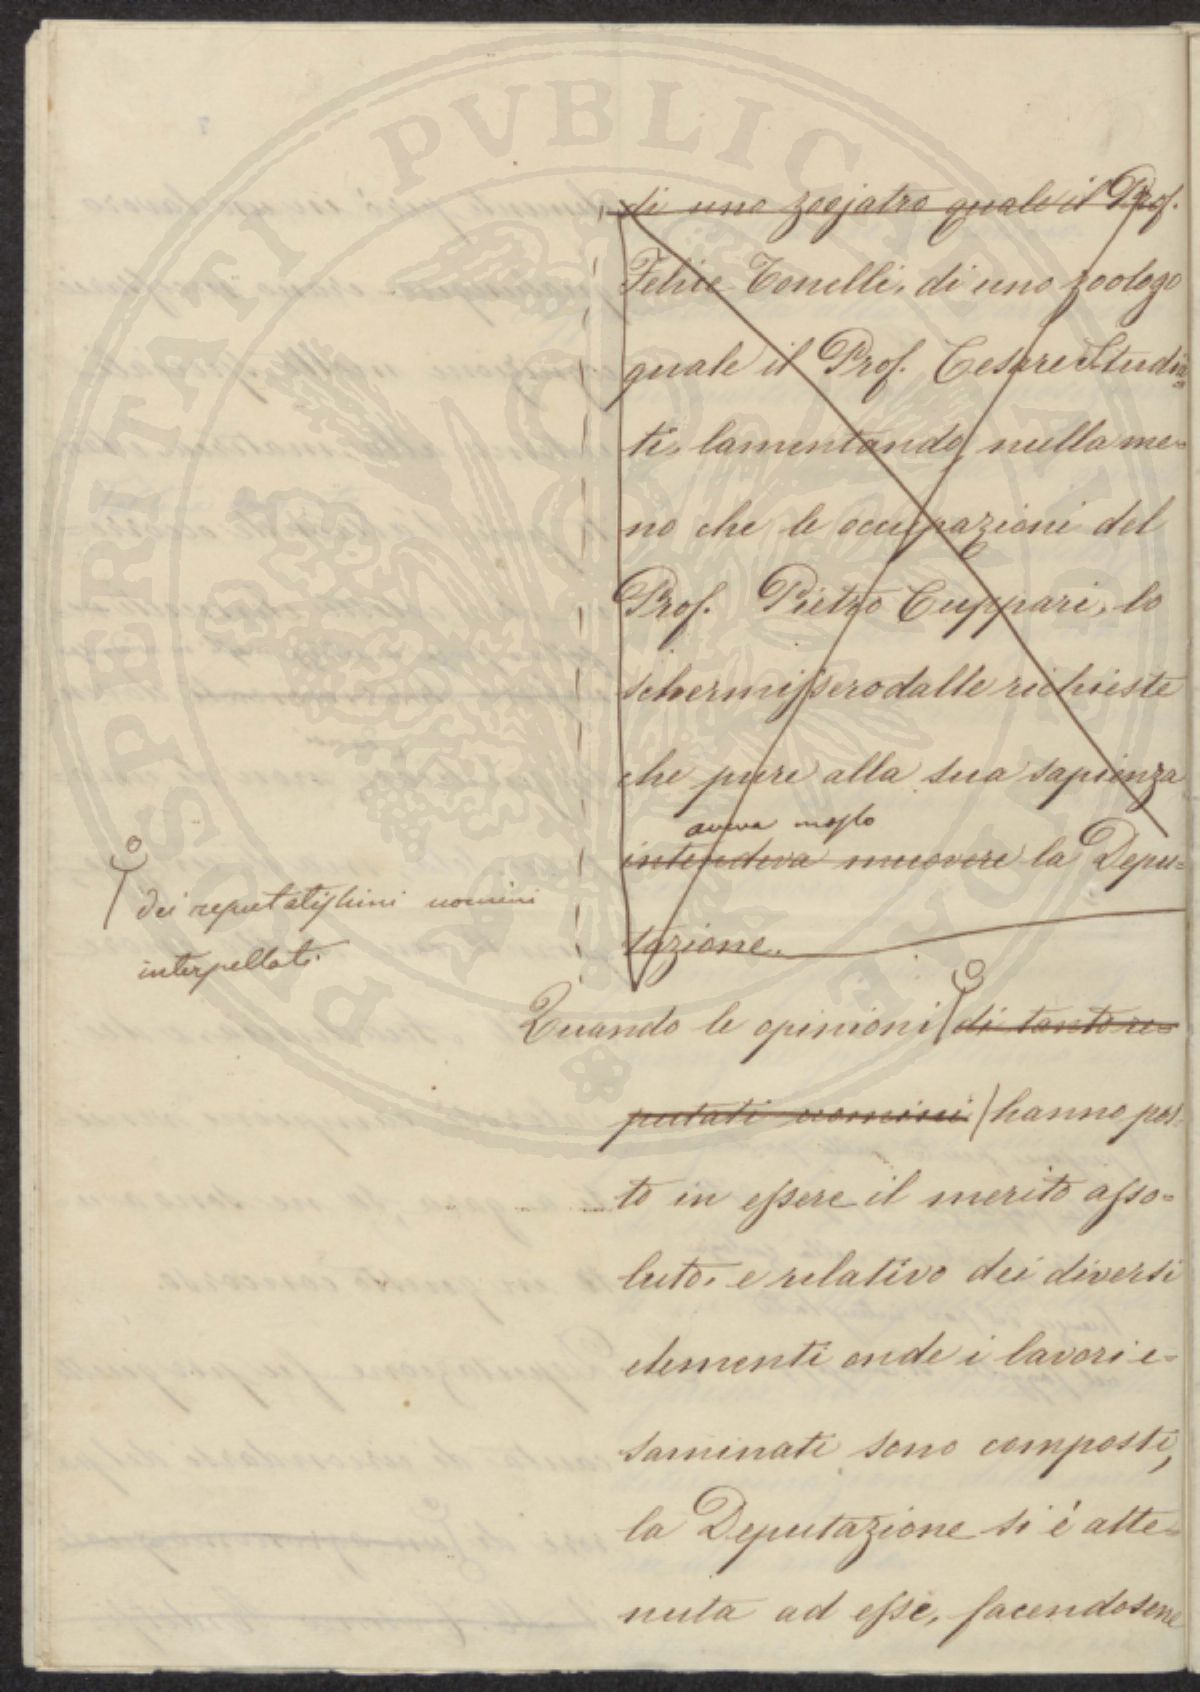 di uno zoojatro quale il Prof.
Felice Tonelli, di uno zoologo
quale il Prof. Cesare Studia=
ti, lamentando nulla me=
no che le occupazioni del
Prof. Pietro Cuppari, lo
schermissero dalle richieste
che pure alla sua sapienza
aveva mosso
intendeva muovere la Depu=
tazione.
dei reputatissimi uomini
interpellati.
Quando le opinioni di tanto re=
putati uomini hanno pos=
to in essere il merito asso=
luto, e relativo dei diversi
elementi onde i lavori e=
saminati sono composti,
la Deputazione si é atte=
nuta ad esse, facendosene
PROSPERITATI PVBLICAE AVGENDAE